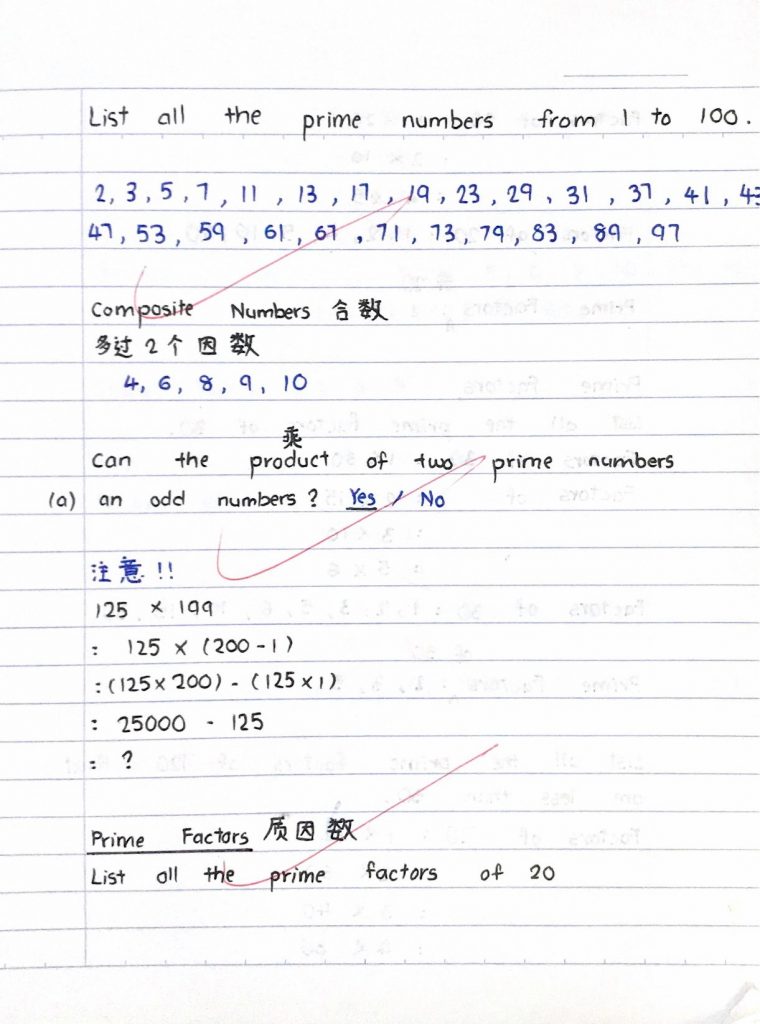 List all the prime numbers from 1 to 100.
2, 3, 5, 7, 11, 13, 17, 19, 23, 29, 31, 37, 41, 43
47, 53, 59, 61, 67, 71, 73, 79, 83, 89, 97
Composite Numbers 合数
多过2个因数
4, 6, 8, 9, 10
乘
Can the product of two prime numbers
(a) an odd numbers? Yes / No
注意!!
125 × 199
: 125 × (200-1)
: (125×200) - (125×1)
: 25000 - 125
: ?
Prime Factors 质因数
List all the prime factors of 20